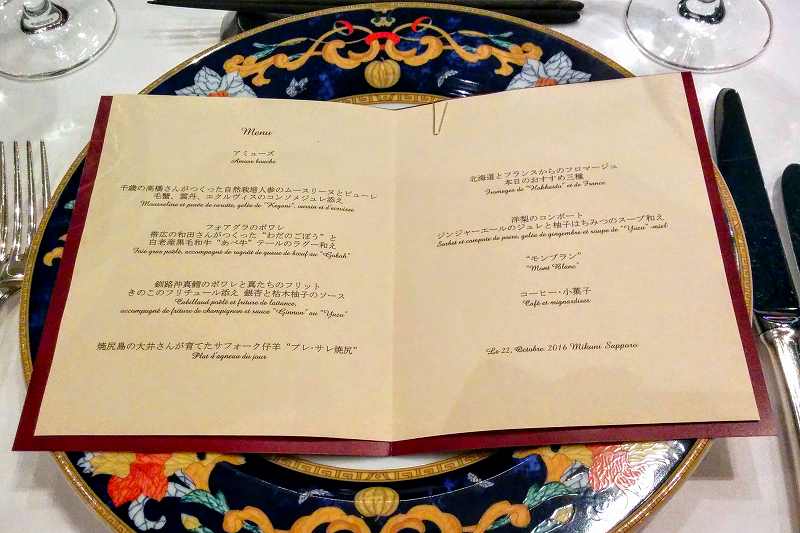 Menu
アミューズ
Amuse bouche
千歳の高橋さんがつくった自然栽培人参のムースリーヌとピューレ
毛蟹、雲丹、エクルヴィスのコンソメジュレ添え
Mousseline et purée de carotte, gelée de "Kegani", oursin et d'écrevisse
フォアグラのポワレ
帯広の和田さんがつくった"わだのごぼう"と
白老産黒毛和牛"あべ牛"テールのラグー和え
Foie gras poêlé, accompagné de ragoût de queue de bœuf au "Goboh"
釧路沖真鱈のポワレと真たちのフリット
きのこのフリチュール添え 銀杏と枯木柚子のソース
Cabillaud poêlé et friture de laitance,
accompagné de friture de champignon et sauce "Ginnan" au "Yuzu"
焼尻島の大井さんが育てたサフォーク仔羊"プレ・サレ焼尻"
Plat d'agneau du jour
北海道とフランスからのフロマージュ
本日のおすすめ三種
Fromages de "Hokkaido" et de France
洋梨のコンポート
ジンジャーエールのジュレと柚子はちみつのスープ和え
Sorbet et compote de poire, gelée de gingembre et soupe de "Yuzu"-miel
"モンブラン"
"Mont Blanc"
コーヒー・小菓子
Café et mignardises
Le 22, Octobre, 2016 Mikuni Sapporo